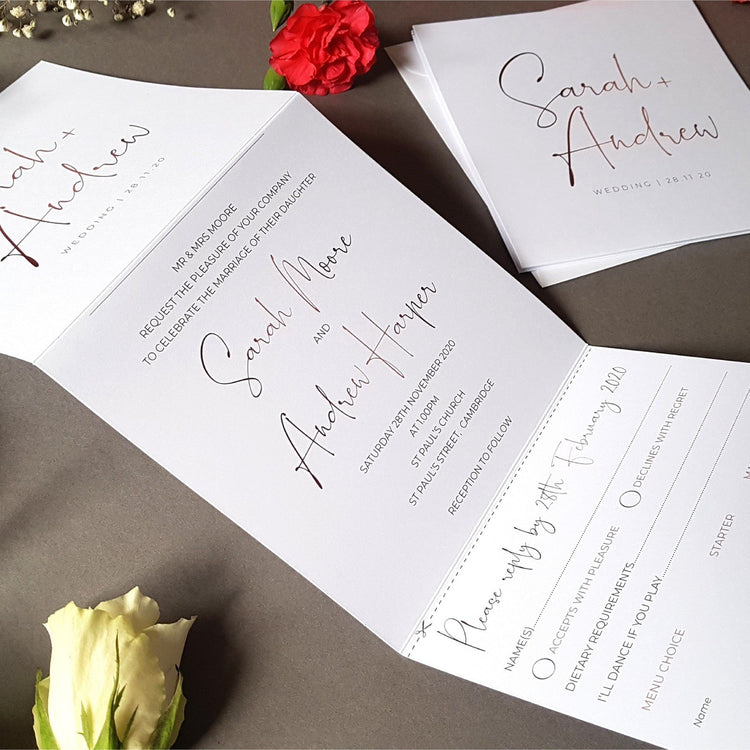 Andrew
WEDDING | 28·11·20
MR & MRS MOORE
REQUEST THE PLEASURE OF YOUR COMPANY
TO CELEBRATE THE MARRIAGE OF THEIR DAUGHTER
Sarah Moore
AND
Andrew Harper
SATURDAY 28TH NOVEMBER 2020
AT 1.00PM
ST PAUL'S CHURCH
ST PAUL'S STREET, CAMBRIDGE
RECEPTION TO FOLLOW
Sarah +
Andrew
WEDDING | 28·11·20
Please reply by 28th February 2020
NAME(S)
ACCEPTS WITH PLEASURE DECLINES WITH REGRET
DIETARY REQUIREMENTS
I'LL DANCE IF YOU PLAY
MENU CHOICE
STARTER
Name